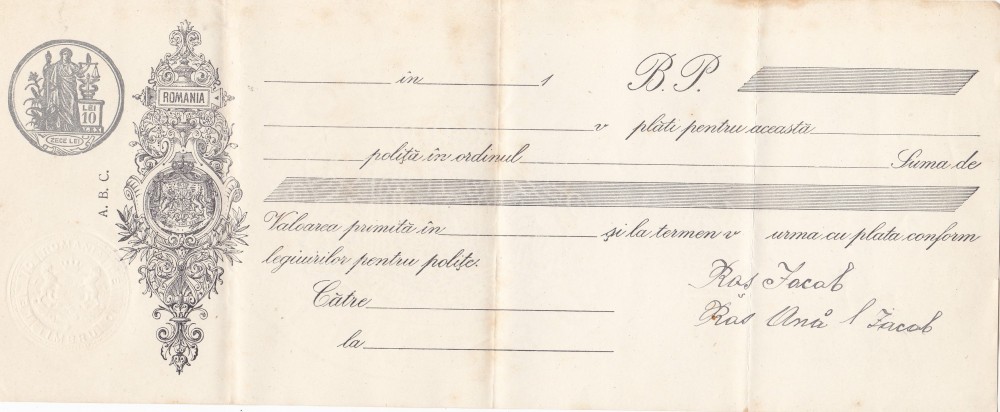 ROMANIA
LEI
10
ZECE LEI
A. B. C.
în 1 B. P.
v plăti pentru această
poliță în ordinul Suma de
Valoarea primită în și la termen v urma cu plata conform
legiuirilor pentru polițe.
Către
la
Ras Jacob
Räs Anå l Jacob